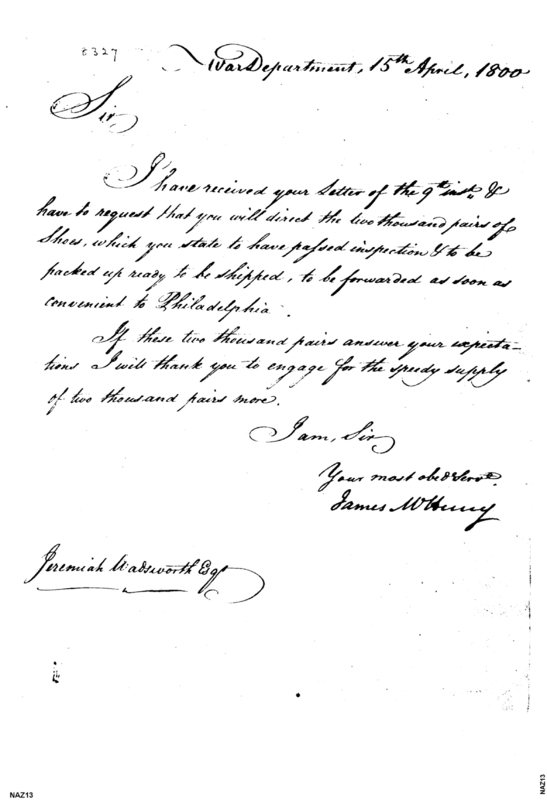 8327
War Department, 15th April, 1800
Sir
I have received your Letter of the 9th inst. &
have to request that you will direct the two thousand pairs of
Shoes, which you state to have passed inspection & to be
packed up ready to be shipped, to be forwarded as soon as
convenient to Philadelphia.
If these two thousand pairs answer your expecta-
tions I will thank you to engage for the speedy supply
of two thousand pairs more.
I am, Sir
Your most obed Servt.
James McHenry
Jeremiah Wadsworth Esqr
NAZ13
NAZ13